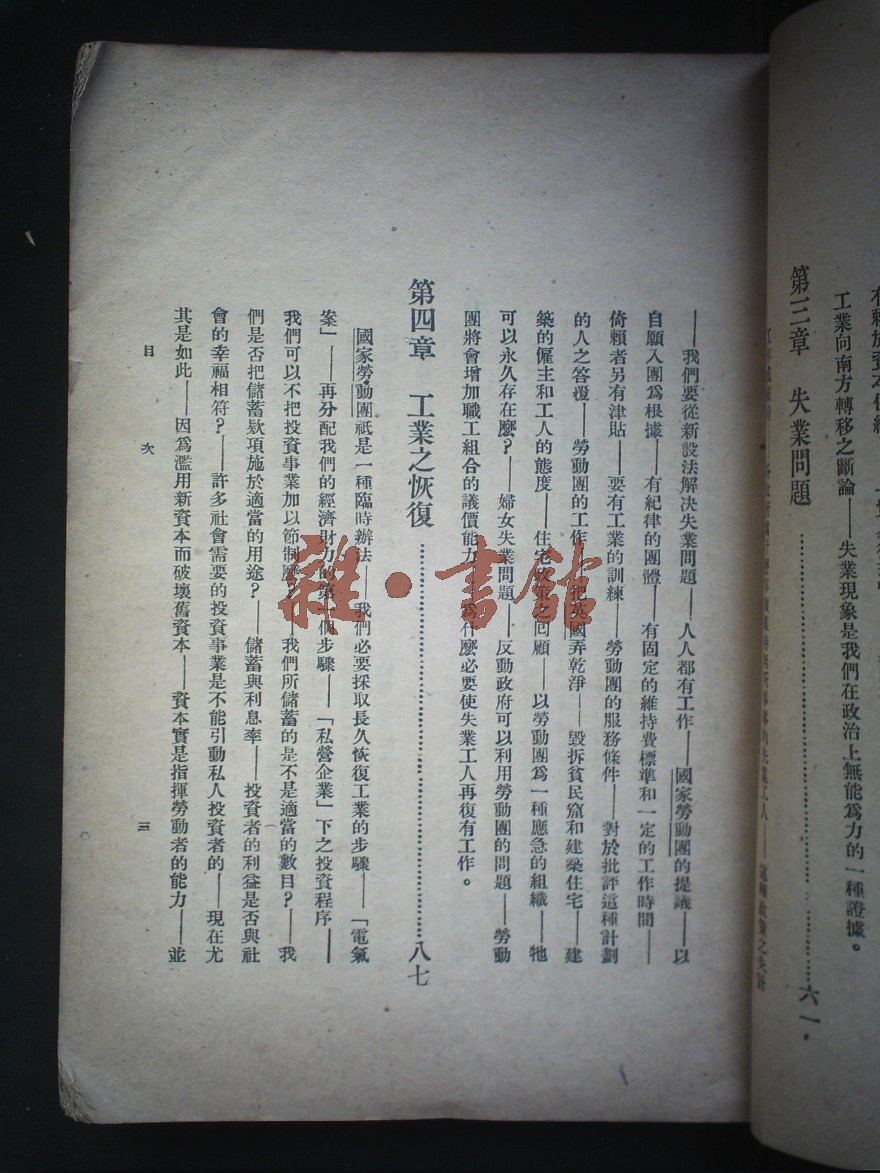 工業向南方轉移之斷論——失業現象是我們在政治上無能爲力的一種證據。
第三章 失業問題……六一
——我們要從新設法解決失業問題——人人都有工作——國家勞動團的提議——以
自願入團爲根據——有紀律的團體——有固定的維持費標準和一定的工作時間——
倚賴者另有津貼——要有工業的訓練——勞動團的服務條件——對於批評這種計劃
的人之答覆——勞動團的工作——把英國弄乾淨——毀拆貧民窟和建築住宅——建
築的僱主和工人的態度——住宅政策之回顧——以勞動團爲一種應急的組織——牠
可以永久存在麽?——婦女失業問題——反動政府可以利用勞動團的問題——勞動
團將會增加職工組合的議價能力——爲什麽必要使失業工人再復有工作。
第四章 工業之恢復……八七
國家勞動團祇是一種臨時辦法——我們必要採取長久恢復工業的步驟——「電氣
案」——再分配我們的經濟財力的第一個步驟——「私營企業」下之投資程序——
我們可以不把投資事業加以節制麽?——我們所儲蓄的是不是適當的數目?——我
們是否把儲蓄欵項施於適當的用途?——儲蓄與利息率——投資者的利益是否與社
會的幸福相符?——許多社會需要的投資事業是不能引動私人投資者的——現在尤
其是如此——因爲濫用新資本而破壞舊資本——資本實是指揮勞動者的能力——並
目 次 三
雜·書館